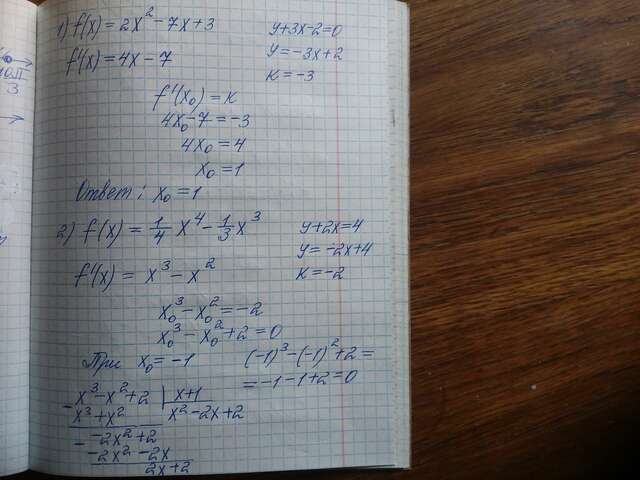 1) f(x) = 2x² - 7x + 3
y + 3x - 2 = 0
f'(x) = 4x - 7
y = -3x + 2
к = -3
f'(x₀) = к
4x₀ - 7 = -3
4x₀ = 4
x₀ = 1
Ответ: x₀ = 1
2) f(x) = 1/4 x⁴ - 1/3 x³
y + 2x = 4
y = -2x + 4
f'(x) = x³ - x²
к = -2
x₀³ - x₀² = -2
x₀³ - x₀² + 2 = 0
При x₀ = -1
(-1)³ - (-1)² + 2 =
= -1 - 1 + 2 = 0
- x³ - x² + 2 | x + 1
x³ + x² | x² - 2x + 2
- -2x² + 2
-2x² - 2x
2x + 2